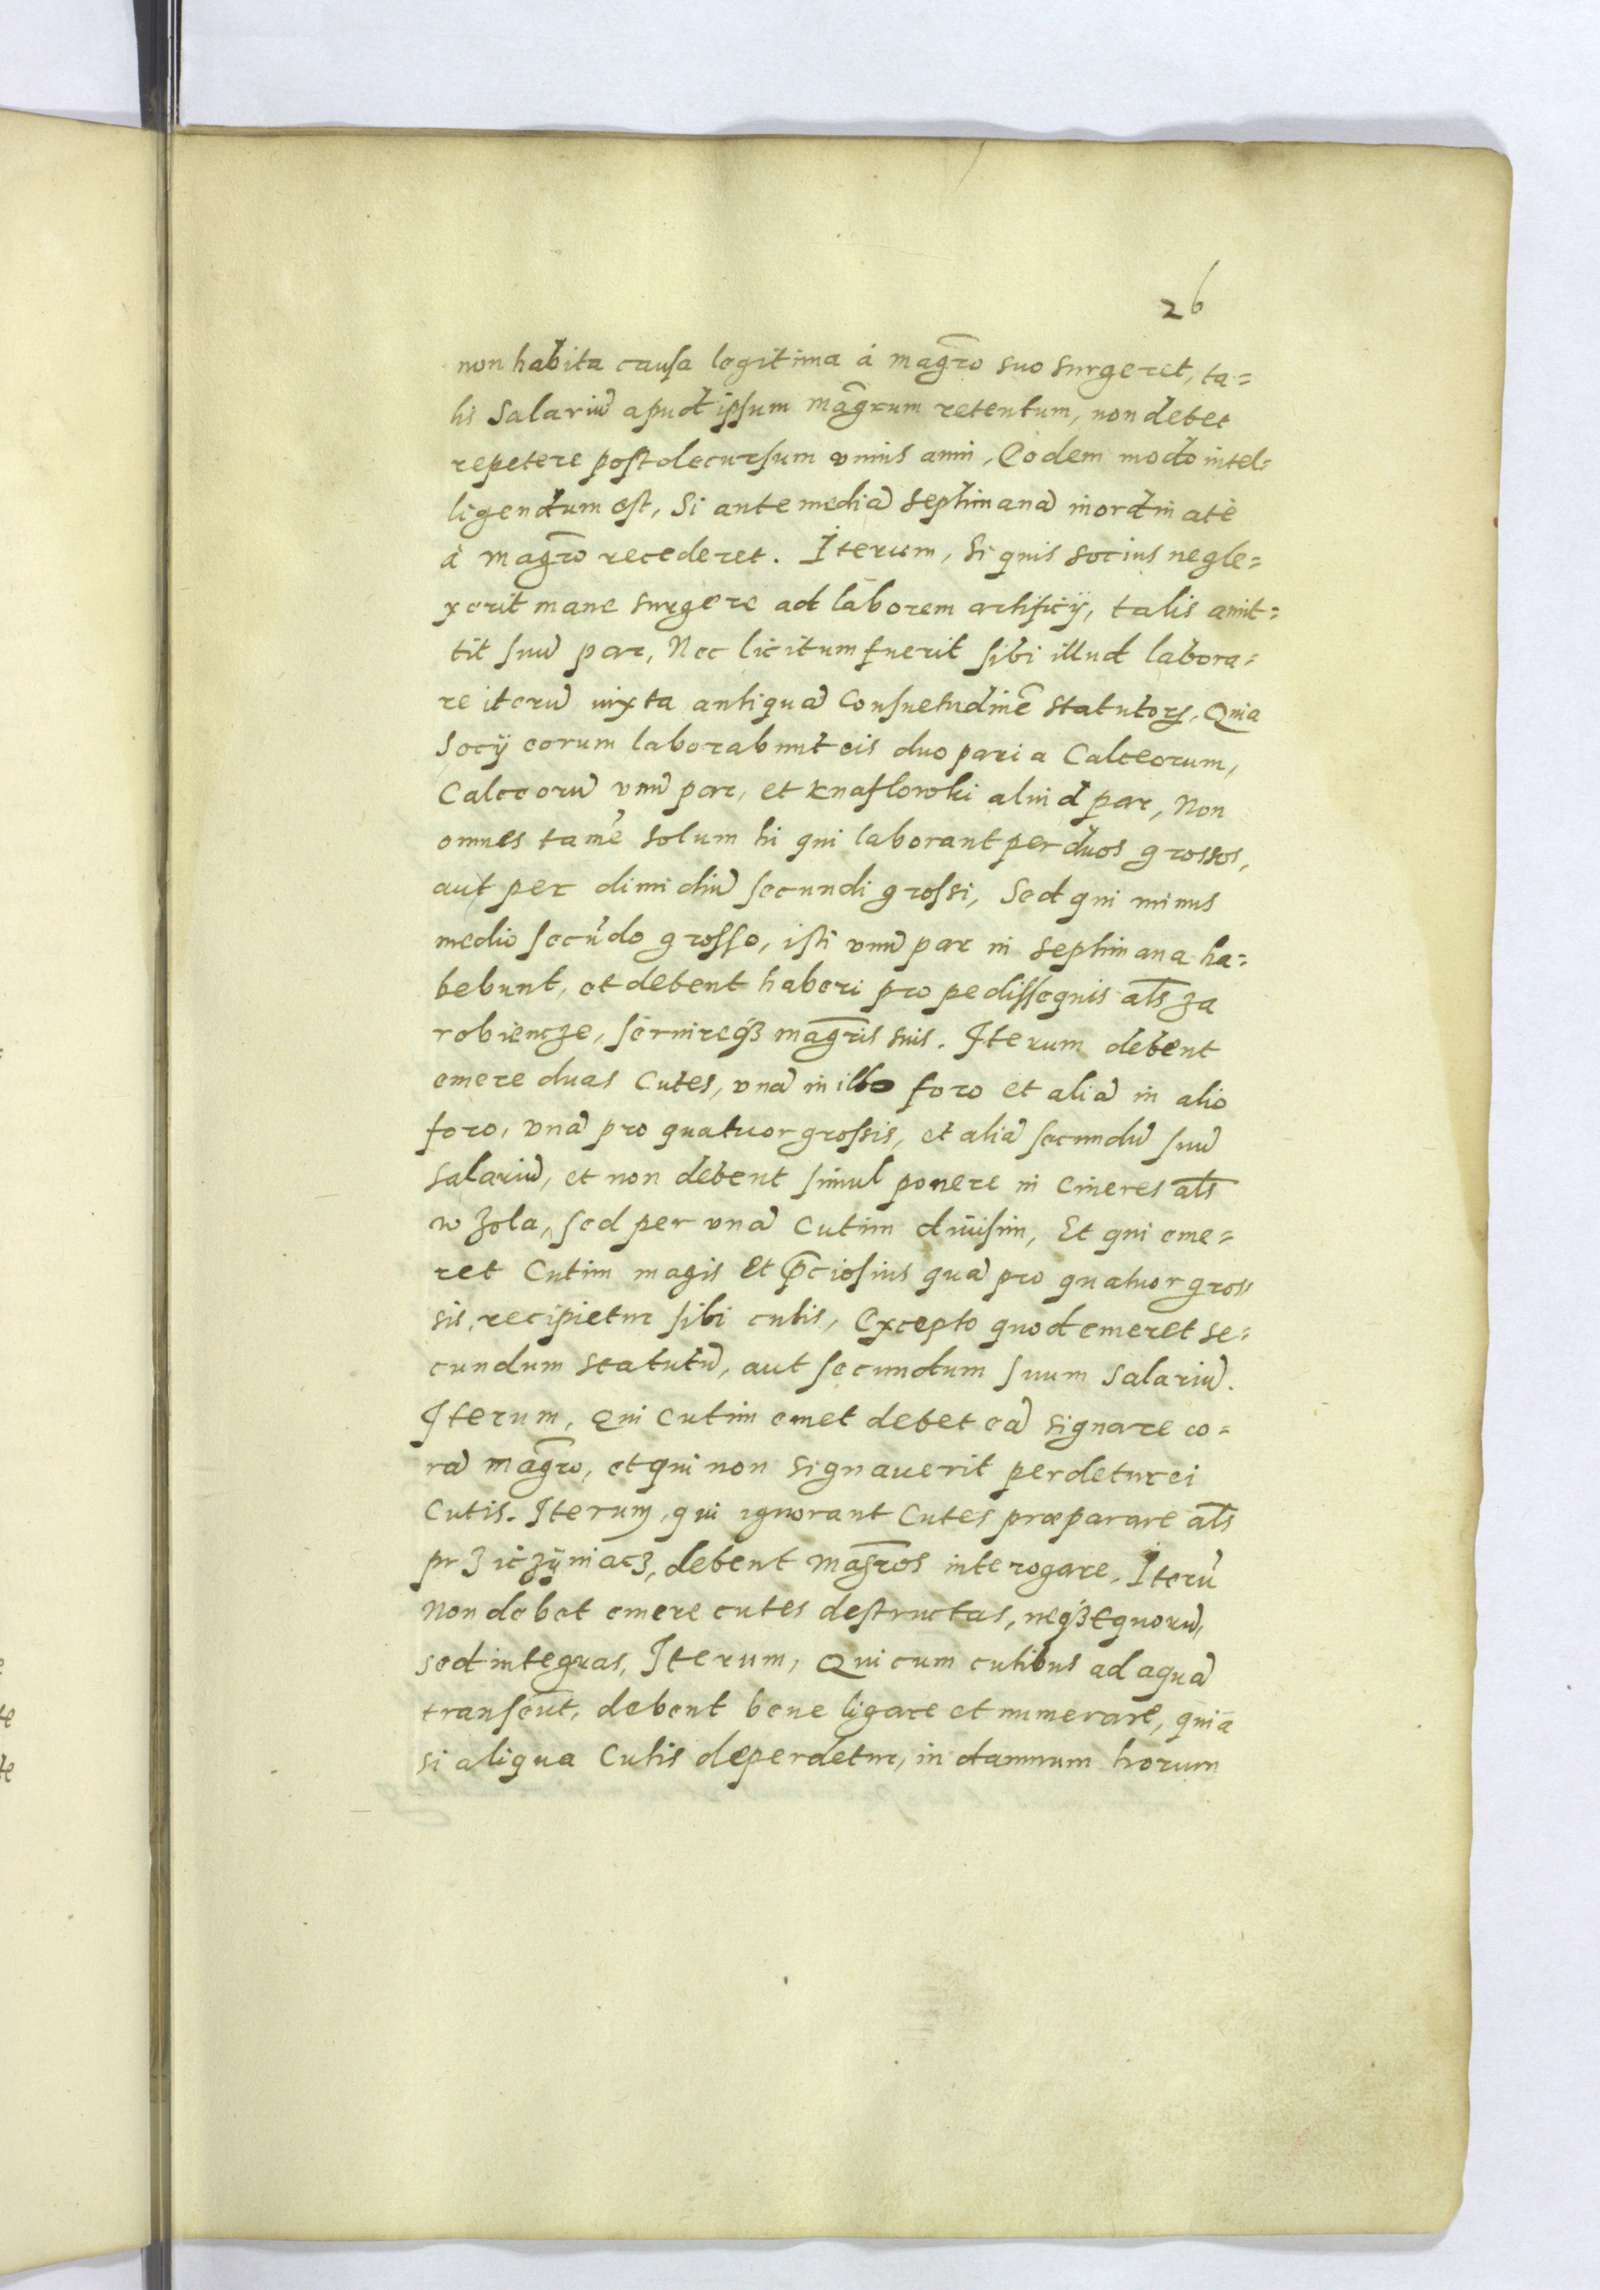 26
non habita causa legitima à magr̃o suo surgeret, ta=
lis Salariũ apud ipsum mãgrum retentum, non debet
repetere post decursum vnius anni, Eodem modo intel=
ligendum est, Si ante mediã septimanã inordinatè
à magr̃o recederet. Iterum, Si quis socius negle=
xerit mane surgere ad laborem artificij, talis amit=
tit suũ par, Nec licitum fuerit sibi illud labora=
re iterũ iuxta antiquã Consuetudinẽ statutorꝫ, Quia
Socij eorum laborabunt eis duo paria Calceorum,
Calceorũ vnũ par, et knaflowki aliud par, Non
omnes tamẽ solum hi qui laborant per duos grossos,
aut per dimidiũ secundi grossi, Sed qui minus
medio secũdo grosso, isti vnũ par in septimana ha=
bebunt, et debent haberi pro pedissequis al̃s za
robiencze, seruireqꝫ magr̃is suis. Iterum debent
emere duas Cutes, vnã in illo foro et aliã in alio
foro, vnã pro quatuor grossis, et aliã secundũ suũ
salariũ, et non debent simul ponere in Cineres al̃s
w zola, sed per vnã Cutim diuisim, Et qui eme=
ret Cutim magis et p̃ciosius quã pro quatuor gros
sis, recipietur sibi cutis, Excepto quod emeret se=
cundum statutũ, aut secundum suum Salariũ.
Iterum, Qui Cutim emet debet eã signare co=
rã magr̃o, et qui non signauerit perdetur ei
Cutis. Iterum, qui ignorant Cutes præparare al̃s
prziczÿniacz, debent magr̃os interogare. Iterũ
Non debet emere cutes destructas, neqꝫ Equorũ,
sed integras, Iterum, Qui cum cutibus ad aquã
transeũt, debent bene ligare et numerare, quia
si aliqua Cutis deperdetur, in damnum horum